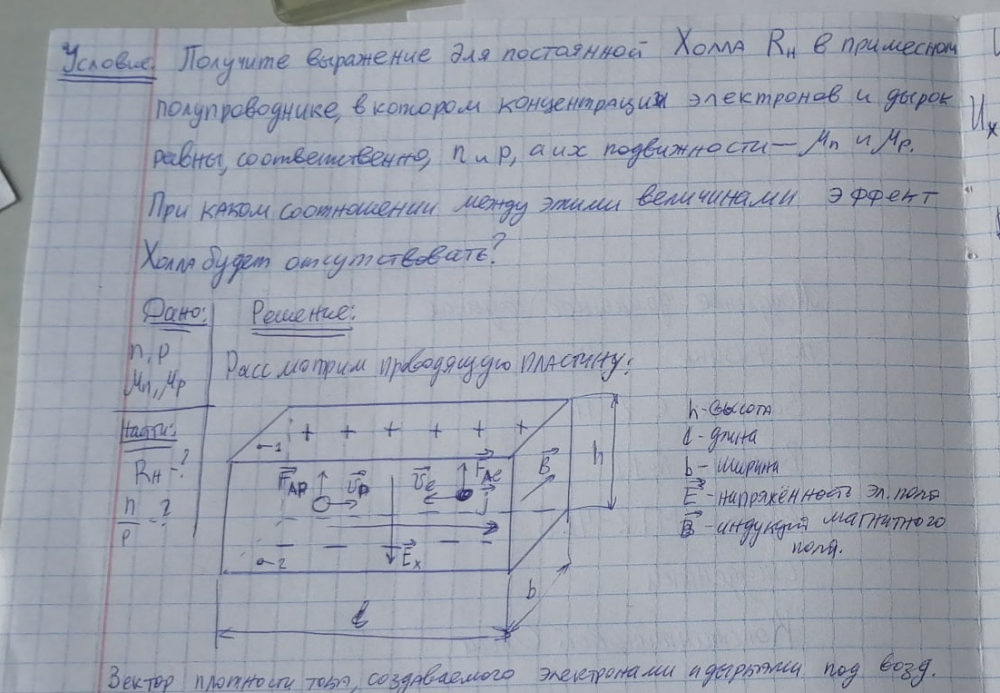 Условие. Получите выражение для постоянной Холла R_H в примесном
полупроводнике, в котором концентрации электронов и дырок
равны, соответственно, n и p, а их подвижности — μn и μp.
При каком соотношении между этими величинами эффект
Холла будет отсутствовать?
Дано:
n, p
μn, μp
Найти:
R_H - ?
n/p - ?
Решение:
Рассмотрим проводящую пластину:
1
+ + + + + +
F_Ap
v_p
v_e
F_Ae
B
j
E_x
2
h
b
ℓ
h - высота
ℓ - длина
b - ширина
E - напряжённость эл. поля
B - индукция магнитного
поля.
Вектор плотности тока, создаваемого электронами и дырками под возд.
U_x